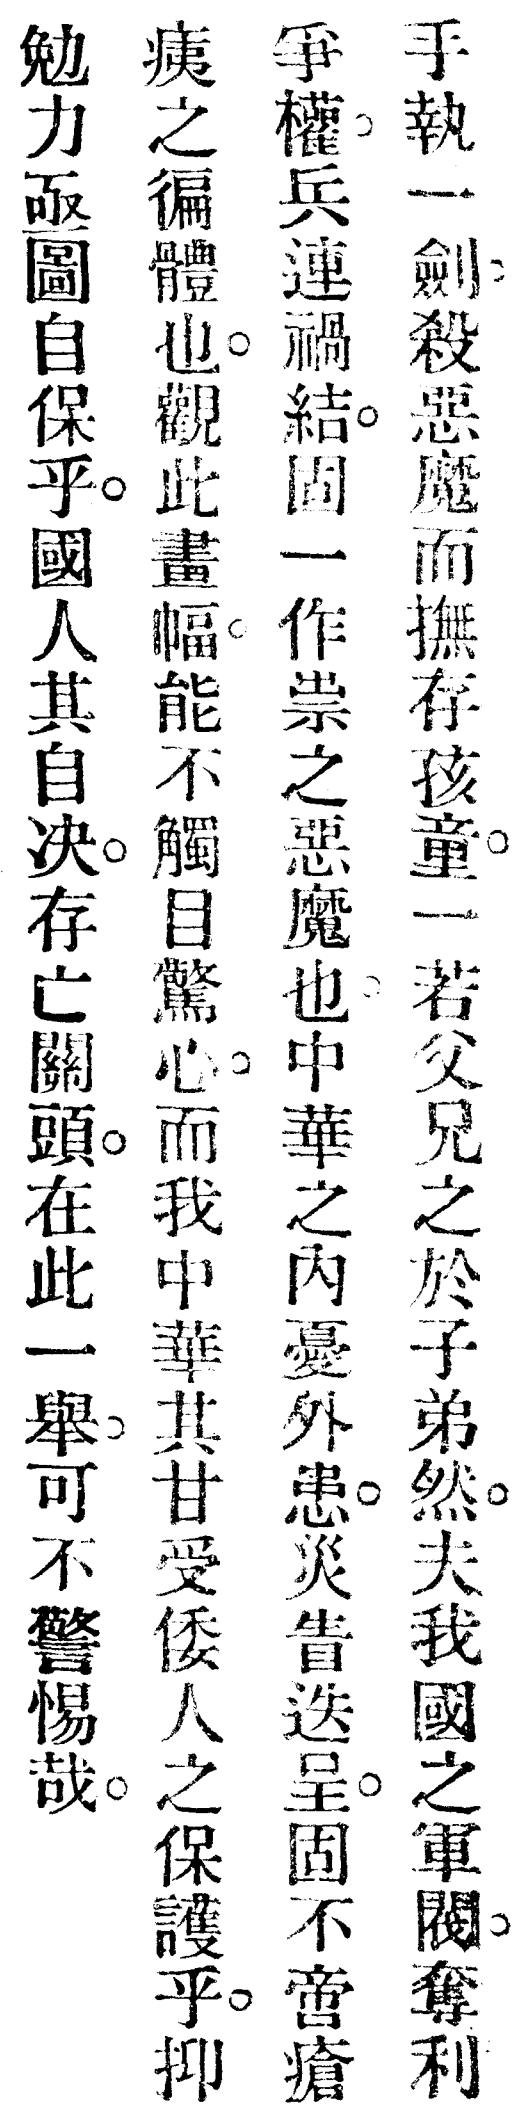 手執一劍。殺惡魔而撫存孩童。一若父兄之於子弟然。夫我國之軍閥。奪利
爭權。兵連禍結。固一作祟之惡魔也。中華之內憂外患。災眚迭呈。固不啻瘡
痍之徧體也。觀此畫幅。能不觸目驚心。而我中華其甘受倭人之保護乎。抑
勉力亟圖自保乎。國人其自决。存亡關頭。在此一舉。可不警惕哉。